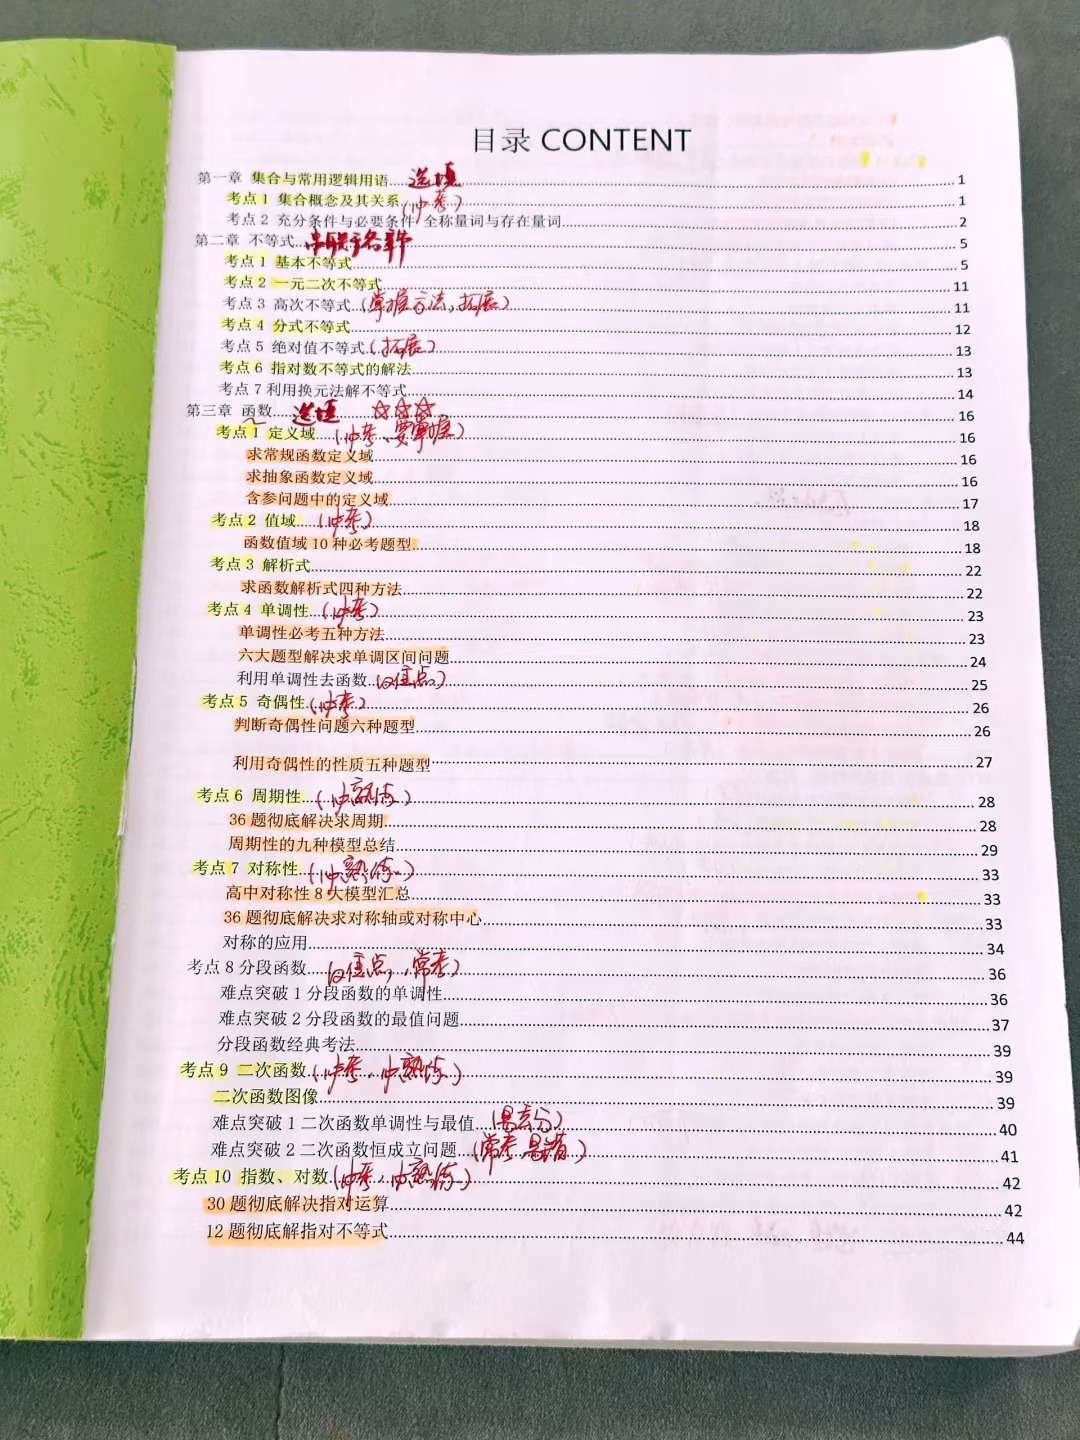 目录 CONTENT
第一章 集合与常用逻辑用语 选填 1
考点1 集合概念及其关系 (必考) 1
考点2 充分条件与必要条件 全称量词与存在量词 2
第二章 不等式 5
考点1 基本不等式 5
考点2 一元二次不等式 11
考点3 高次不等式 (掌握方法,拓展) 11
考点4 分式不等式 12
考点5 绝对值不等式 (拓展) 13
考点6 指对数不等式的解法 13
考点7利用换元法解不等式 14
第三章 函数 选填 ☆☆☆ 16
考点1 定义域 (必考、要掌握) 16
求常规函数定义域 16
求抽象函数定义域 16
含参问题中的定义域 17
考点2 值域 (必考) 18
函数值域10种必考题型 18
考点3 解析式 22
求函数解析式四种方法 22
考点4 单调性 (必考) 23
单调性必考五种方法 23
六大题型解决求单调区间问题 24
利用单调性去函数 (议重点) 25
考点5 奇偶性 (必考) 26
判断奇偶性问题六种题型 26
利用奇偶性的性质五种题型 27
考点6 周期性 (必熟练) 28
36题彻底解决求周期 28
周期性的九种模型总结 29
考点7 对称性 (必熟练) 33
高中对称性8大模型汇总 33
36题彻底解决求对称轴或对称中心 33
对称的应用 34
考点8分段函数 (议重点, 常考) 36
难点突破1分段函数的单调性 36
难点突破2分段函数的最值问题 37
分段函数经典考法 39
考点9 二次函数 (必考、必熟练) 39
二次函数图像 39
难点突破1二次函数单调性与最值 (易丢分) 40
难点突破2二次函数恒成立问题 (常考 易错) 41
考点10 指数、对数 (必考、必熟练) 42
30题彻底解决指对运算 42
12题彻底解指对不等式 44